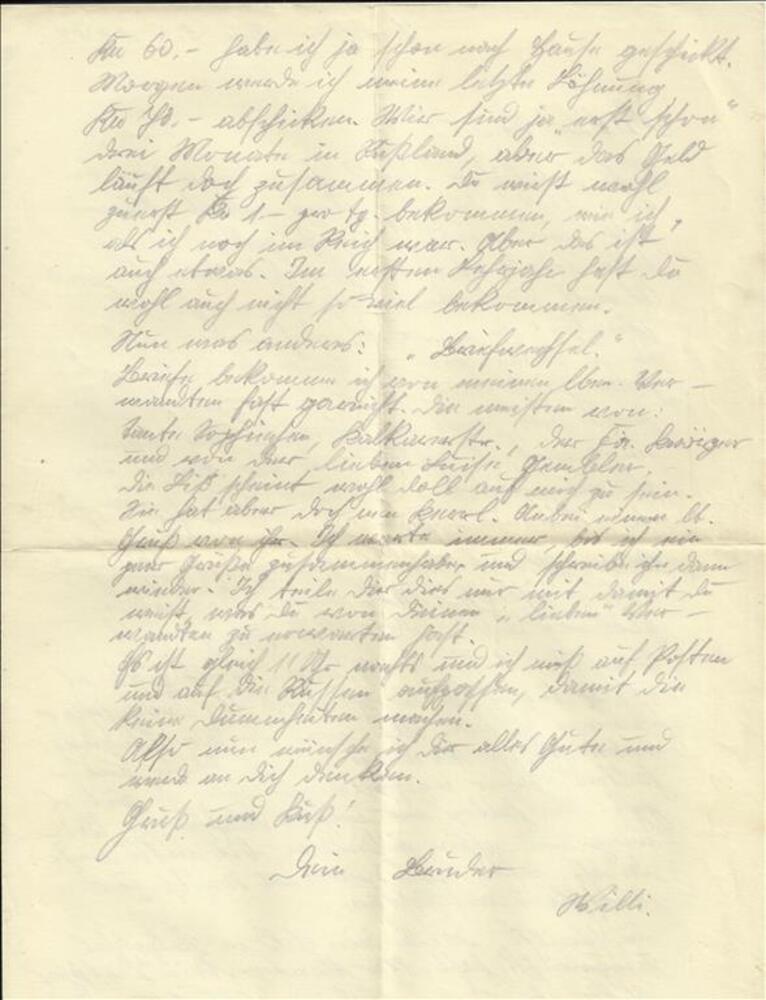 RM 60.- habe ich ja schon nach Hause geschickt.
Morgen werde ich meine letzte Löhnung
RM abschicken. Wir sind ja "erst schon"
drei Monate in Rußland, aber das Geld
läuft doch zusammen. Du wirst wohl
zuerst RM 1.- pro Tg. bekommen, wie ich,
als ich noch im Reich war. Aber das ist
auch etwas. Im ersten Lehrjahr hast Du
wohl auch nicht so viel bekommen.
Nun was anderes: "Briefwechsel."
Briefe bekomme ich von meinen lben. Ver-
wandten fast garnicht. Die meisten von:
Tante Sophiechen, Kalkarerstr., der Fa.
und von der lieben Luise
Die Liß scheint wohl doll auf mich zu sein.
Sie hat aber doch nen Kerl. Anbei einen lb.
Gruß von ihr. Ich warte immer, bis ich ein
paar Grüße zusammenhabe und schreibe ihr dann
wieder. Ich teile Dir dies nur mit damit Du
weißt was Du von Deinen "lieben" Ver-
wandten zu erwarten hast.
Es ist gleich 11 Uhr nachts und ich muß auf Posten
und auf die Russen aufpassen, damit die
keine Dummheiten machen.
Also nun wünsche ich Dir alles Gute und
werde an Dich denken.
Gruß und Kuß!
Dein Bruder
Willi.